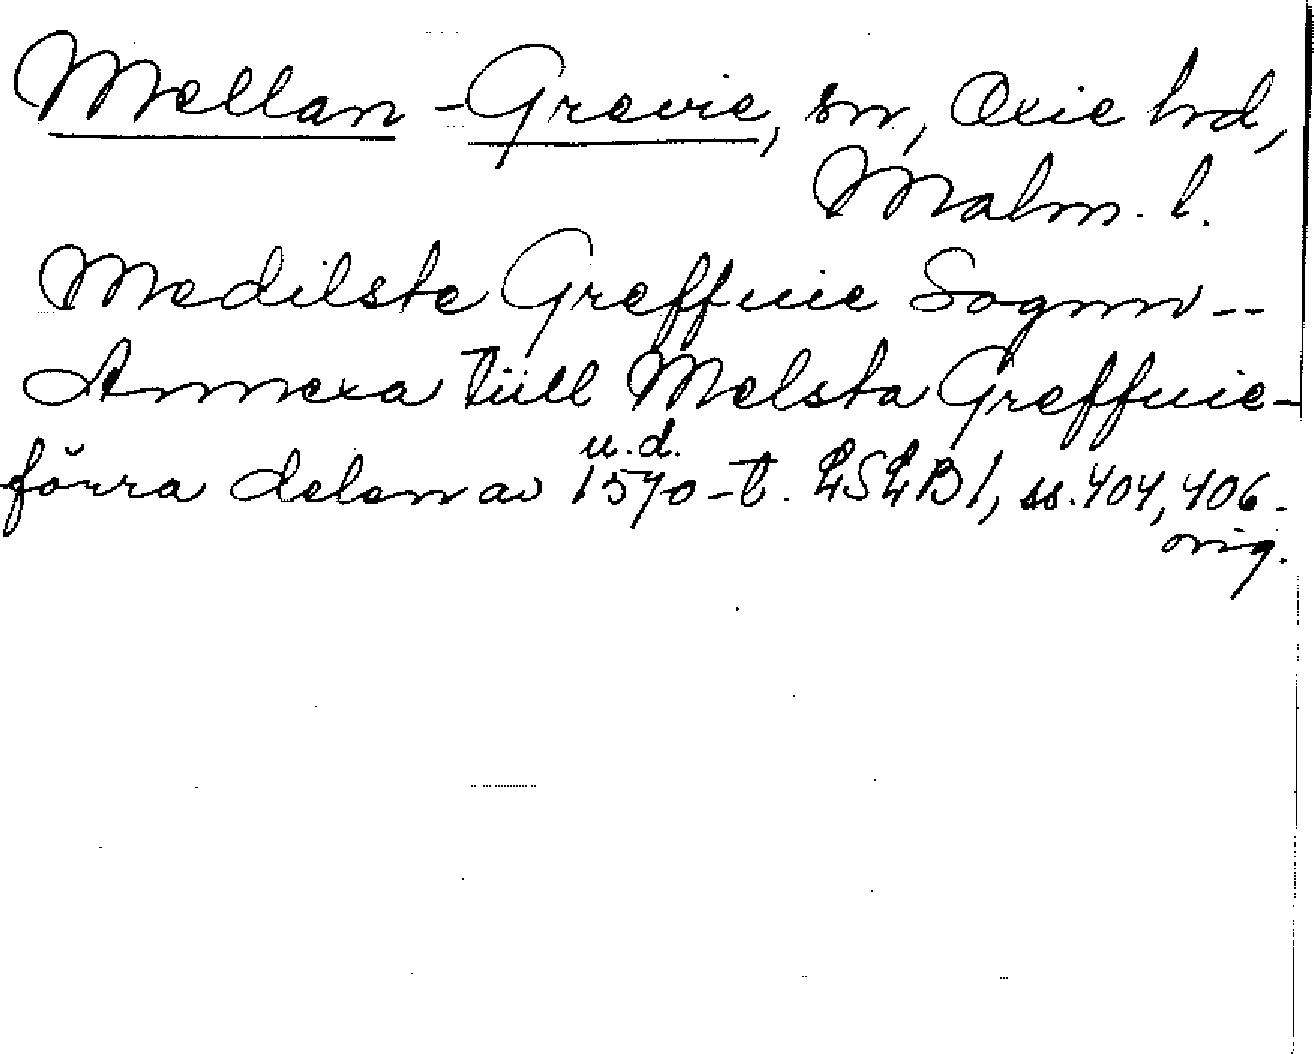 Mellan-Grevie, sn, Oxie hd,
Malm. l.
Medilste Greffuie Sognn --
Annexa tüll Melsta Greffuie -
u.d.
förra delen av 1570-t. LSLB1, ss. 404, 406.
orig.